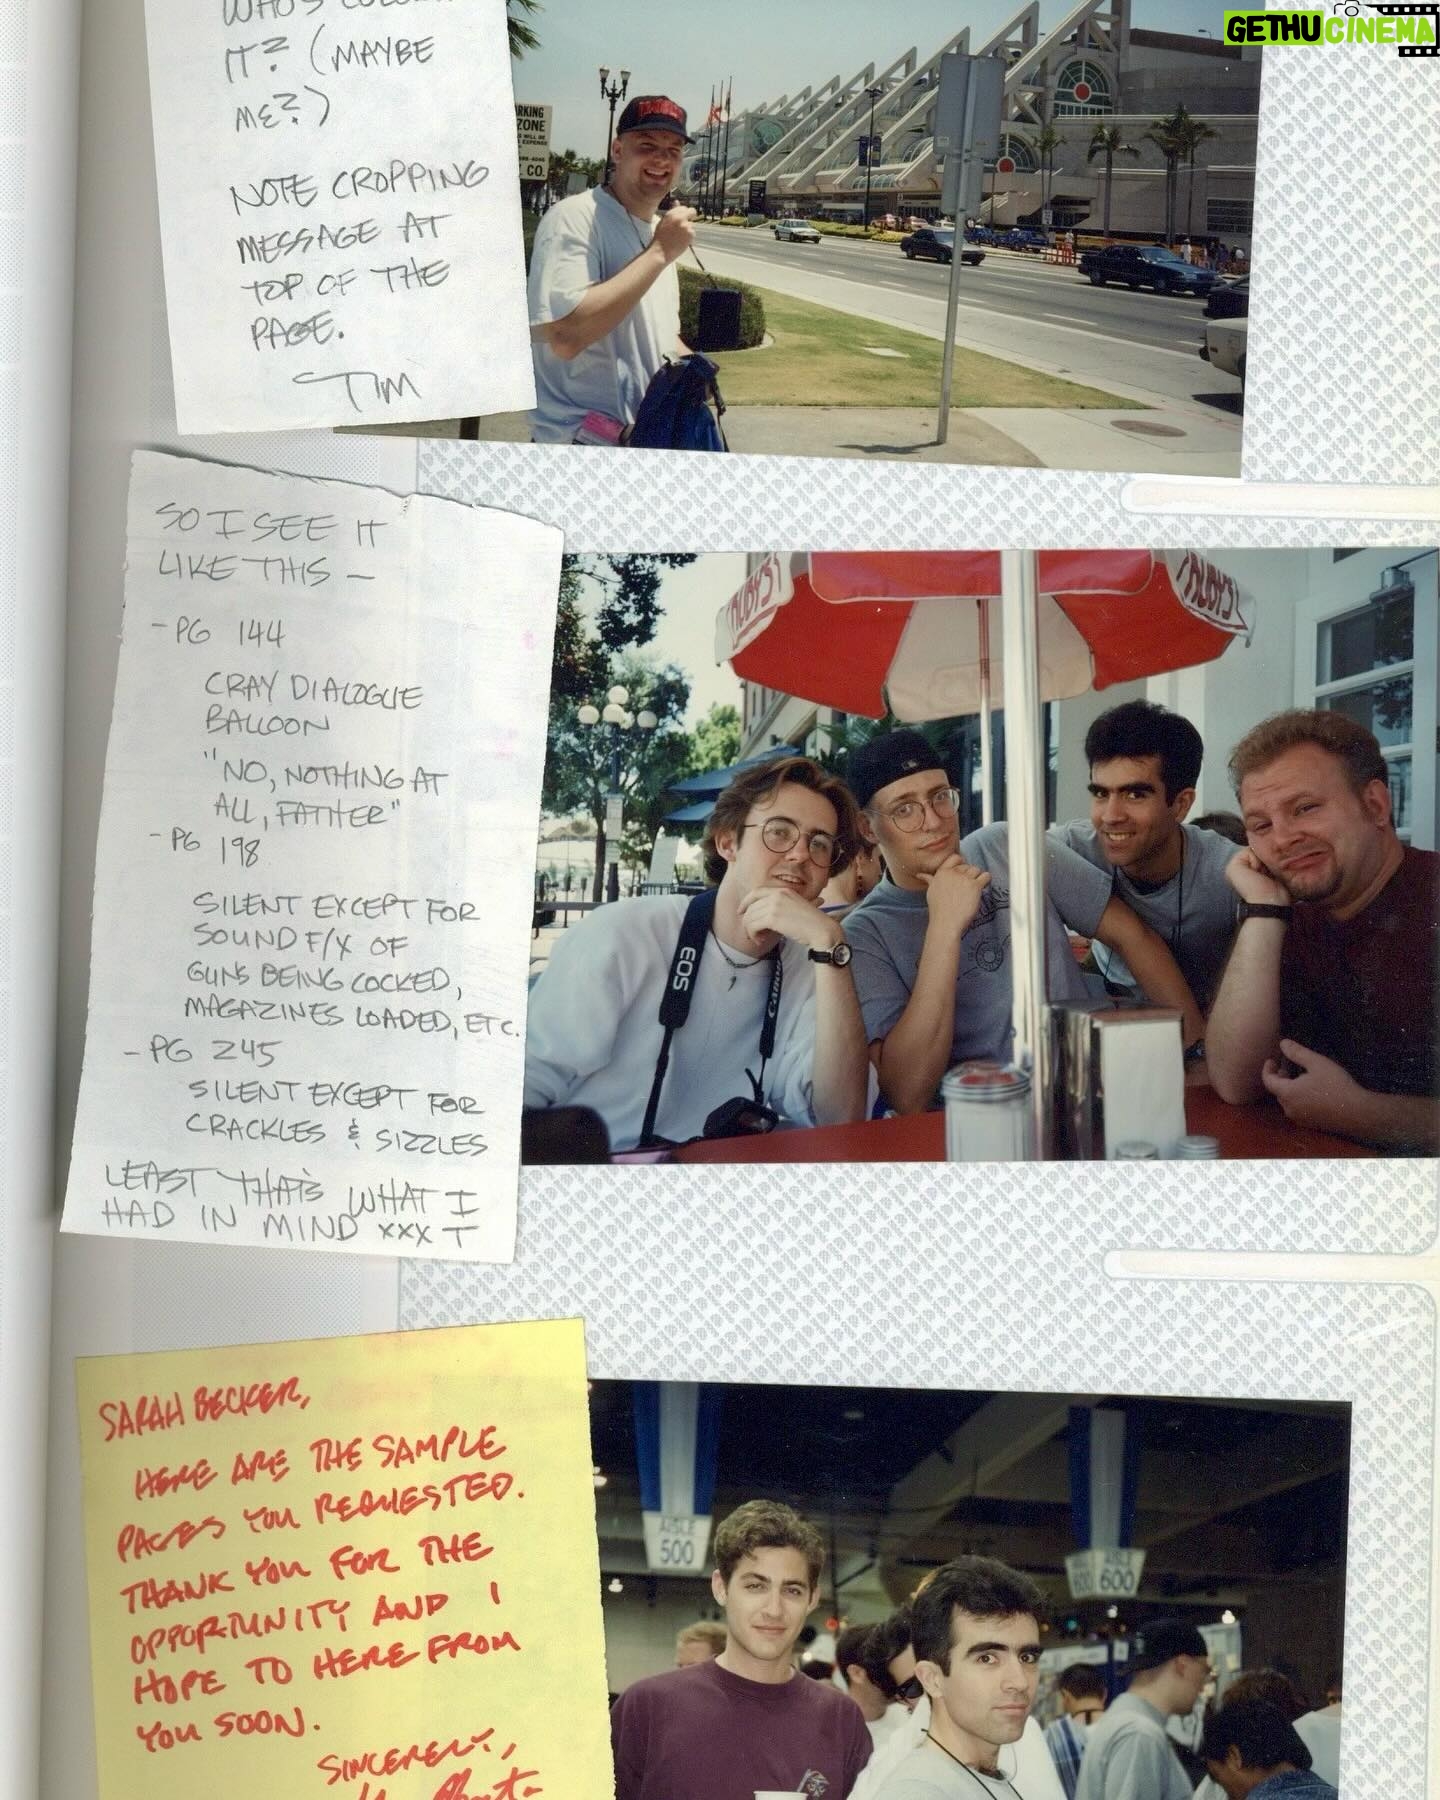 GETHUCINEMA
IT? (MAYBE
ME?)
NOTE CROPPING
MESSAGE AT
TOP OF THE
PAGE.
TIM
RKING
ZONE
CO.
SO I SEE IT
LIKE THIS —
- PG 144
CRAY DIALOGUE
BALLOON
"NO, NOTHING AT
ALL, FATHER"
- PG 198
SILENT EXCEPT FOR
SOUND F/X OF
GUNS BEING COCKED,
MAGAZINES LOADED, ETC.
- PG 245
SILENT EXCEPT FOR
CRACKLES & SIZZLES
LEAST THAT'S WHAT I
HAD IN MIND XXX T
RUBY'S
RUBY'S
EOS
Canon
SARAH BECKER,
HERE ARE THE SAMPLE
PAGES YOU REQUESTED.
THANK YOU FOR THE
OPPORTUNITY AND I
HOPE TO HERE FROM
YOU SOON.
SINCERELY,
AISLE
500
600